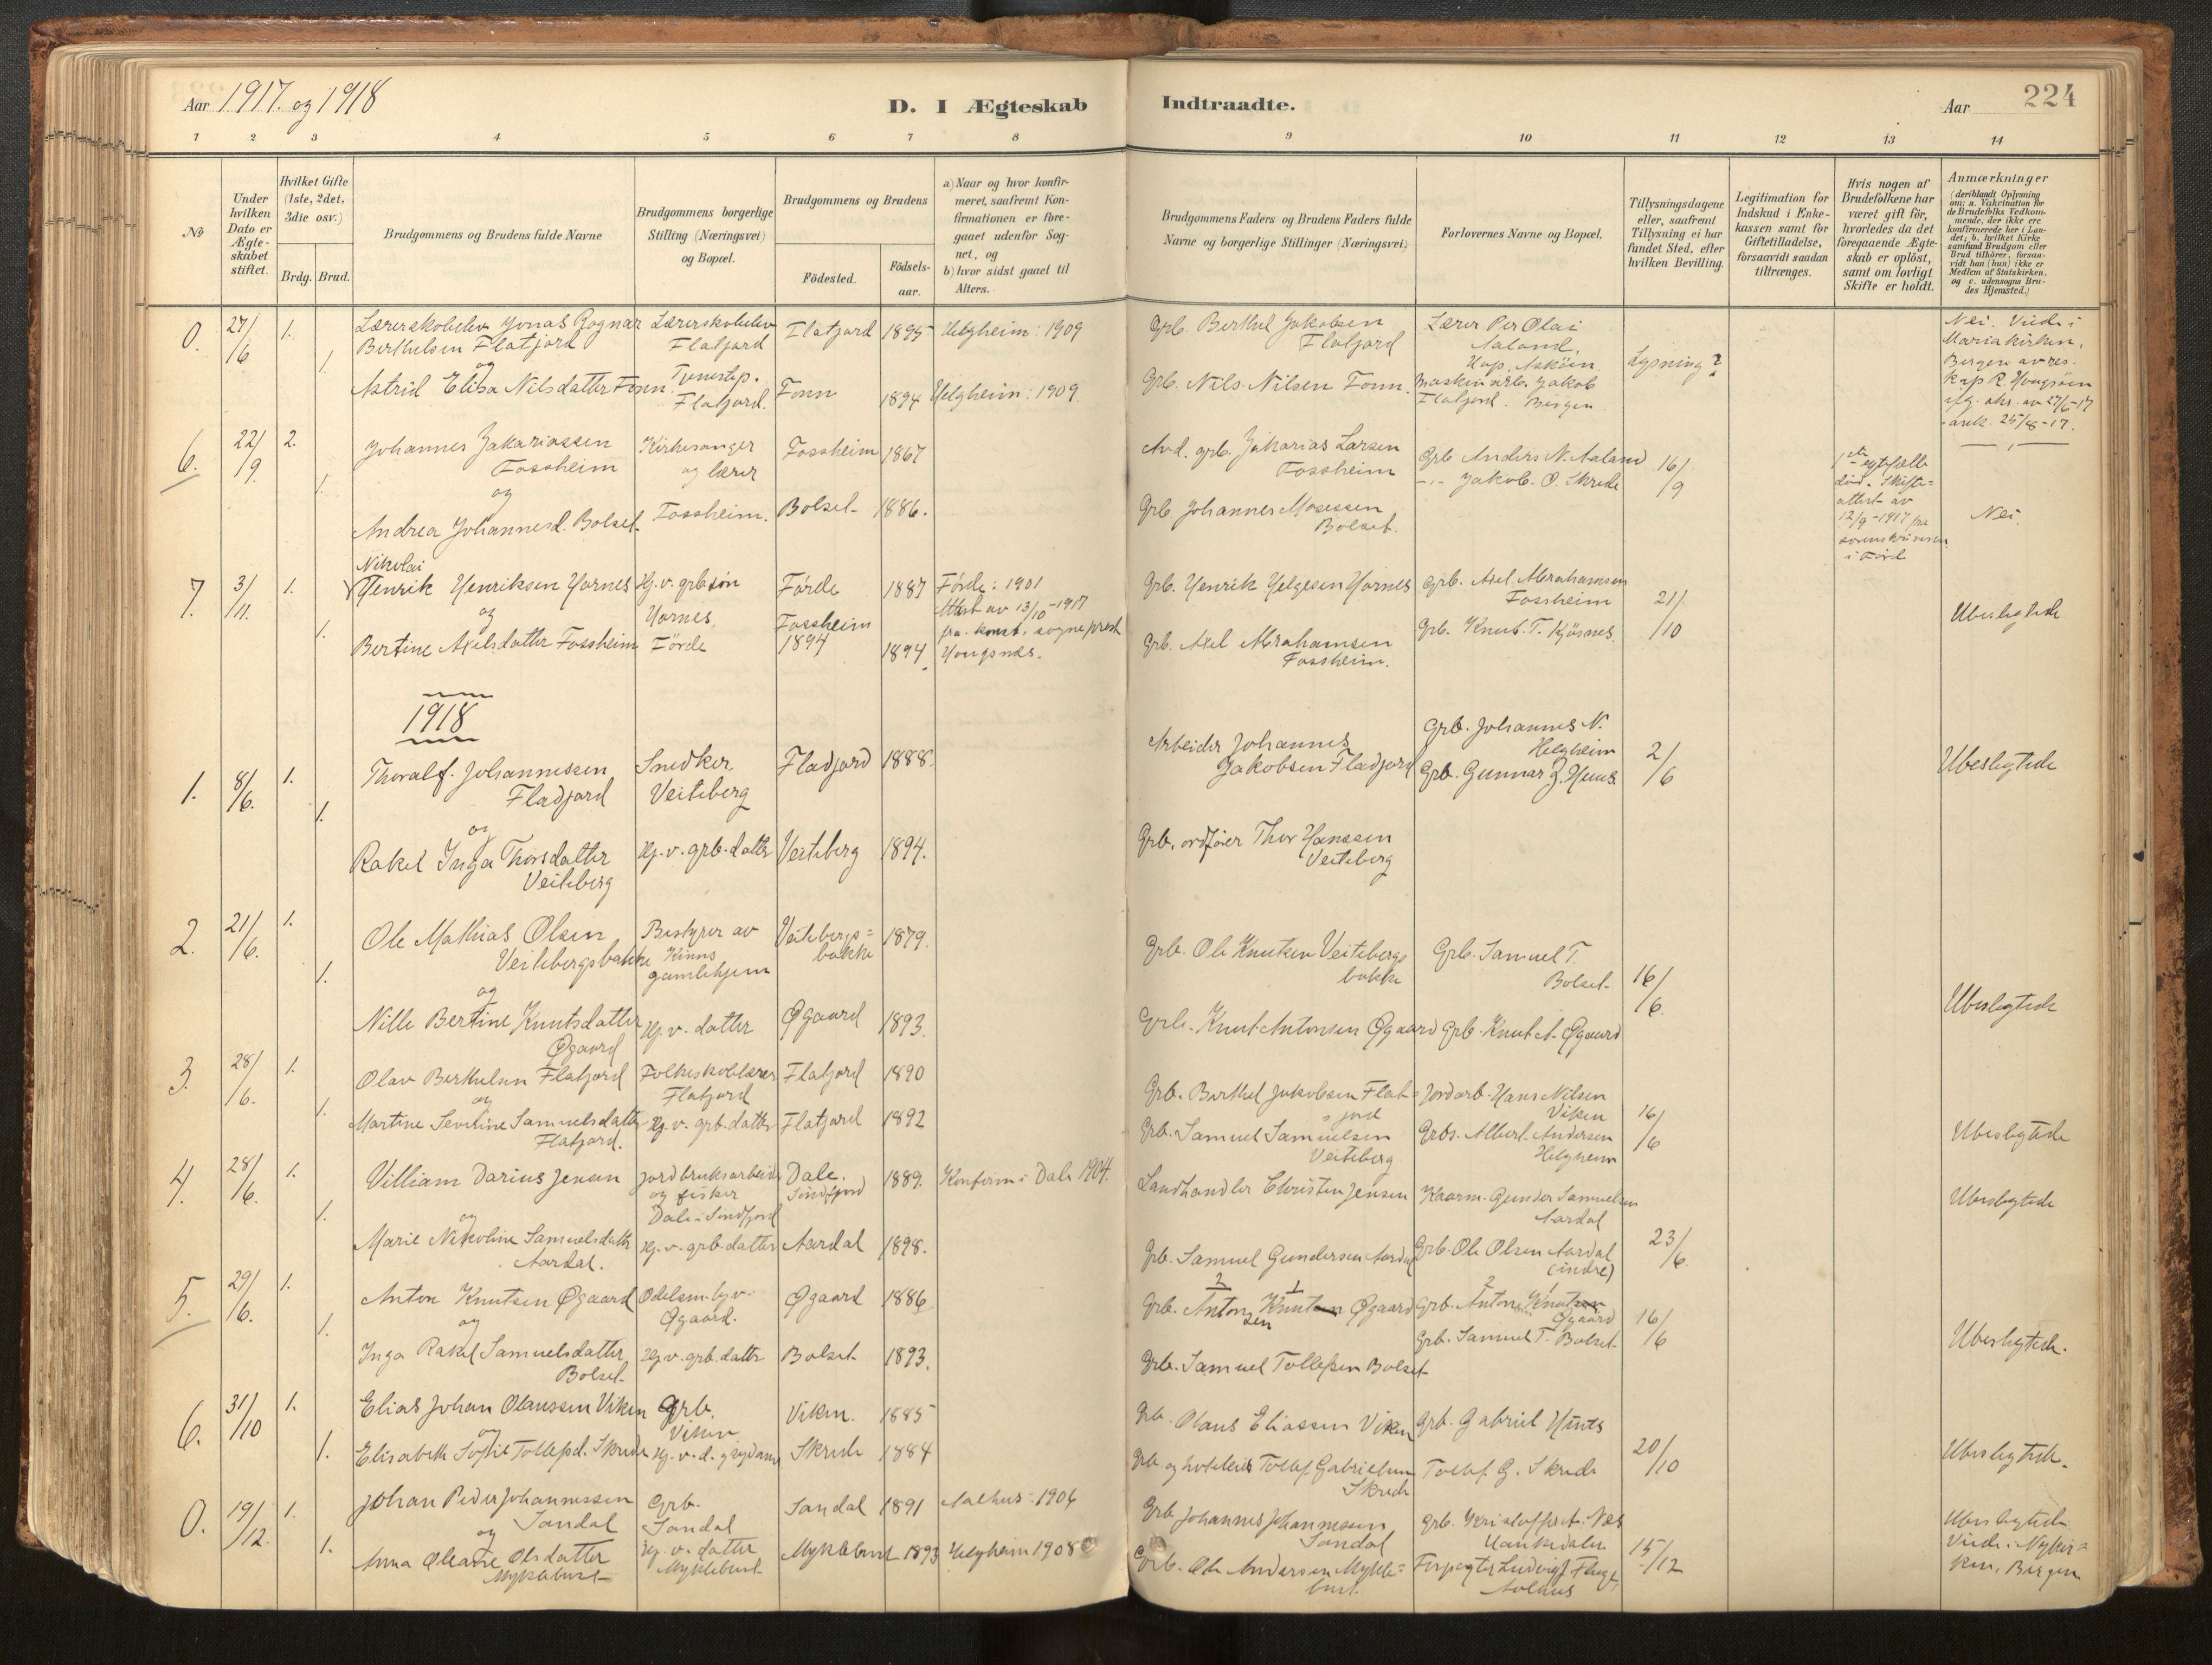 Aar 1917. og 1918
D. I Ægteskab
Indtraadte.
Aar
224
1 2 3 4 5 6 7 8 9 10 11 12 13 14
No
Under hvilken Dato er Ægteskabet stiftet.
Hvilket Gifte (1ste, 2det, 3die osv.)
Brdg. Brud.
Brudgommens og Brudens fulde Navne
Brudgommens borgerlige Stilling (Næringsvei) og Bopæl.
Brudgommens og Brudens
Födested.
Födsels-aar.
a) Naar og hvor konfirmeret, saafremt Konfirmationen er foregaaet udenfor Sognet, og
b) hvor sidst gaaet til Alters.
Brudgommens Faders og Brudens Faders fulde Navne og borgerlige Stillinger (Næringsvei)
Forlovernes Navne og Bopæl.
Tillysningsdagene eller, saafremt Tillysning ei har fundet Sted, efter hvilken Bevilling.
Legitimation for Indskud i Enkekassen samt for Giftetilladelse, forsaavidt saadan tiltrænges.
Hvis nogen af Brudefolkene har været gift för, hvorledes da det foregaaende Ægteskab er oplöst, samt om lovligt Skifte er holdt.
Anmærkninger
(deriblandt Oplysning om: a. Vakcination för de Brudefolks Vedkommende, der ikke ere konfirmerede her i Landet; b. hvilket Kirkesamfund Brudgom eller Brud tilhörer, forsaavidt han (hun) ikke er Medlem af Statskirken, og c. udensogns Brudes Hjemsted.)
0. 27/6 1. Lærerskoleelev Jonas Ragnar
Berthelsen Flatjord
og
1. Astrid Elisa Nilsdatter Fonn
Lærerskoleelev
Flatjord
Tjenestep.
Flatjord.
Flatjord 1895 Helgheim: 1909
Fonn 1894 Helgheim: 1909.
Grb. Berthel Jakobsen
Flatjord
Grb. Nils Nilsen Fonn.
Lærer Per Olai
Aaland,
Hop, Asköen.
Maskinarb. Jakob
Flatjord. Bergen
Lysning?
Nei. Viede i
Mariakirken,
Bergen av res.
kap R. Haugsöen
27/6-17
25/8-17.
6. 22/9 2. Johannes Zakariassen
Fossheim
og
1. Andrea Johannesd. Bolset.
Kirkesanger
og lærer
Fossheim.
Fossheim 1867
Bolset 1886.
Avd. grb. Zakarias Larsen
Fossheim
Grb. Johannes Mosessen
Bolset.
Grb Anders N. Aaland
-"- Jakob O. Skrede
16/9
1ste egtefælle
död. Skifte=
attest av
12/9-1917 fra
sorenskriveren
i Förd
Nei.
7. 3/11. 1. Nikolai
Henrik Henriksen Hornes
og
1. Bertine Axelsdatter Fossheim
Hj. v. grb. sön
Hornes,
Förde
Förde 1887
Fossheim
1894 1894.
Förde: 1901
Attest av 13/10-1917
fra konst. sogneprest
Grb. Henrik Helgesen Hornes
Grb. Axel Abrahamsen
Fossheim.
Grb. Axel Abrahamsen
Fossheim
Grb. Knut T. Kjösnes
21/10
Ubeslegtede
1918
1. 8/6. 1. Thoralf Johannessen
Fladjord
og
1. Rakel Inga Thorsdatter
Veiteberg
Snedker
Veiteberg
Hj. v. grb. datter
Fladjord 1888.
Veiteberg 1894.
Arbeider Johannes
Jakobsen Fladjord
Grb. ordförer Thor Hanssen
Veiteberg
Grb. Johannes N.
Helgheim
Grb. Gunnar J. Huus.
2/6
Ubeslegtede
2. 21/6. 1. Ole Mathias Olsen
Veitebergsbakke
og
1. Nille Bertine Knutsdatter
Øgaard
Bestyrer av
Kinns
gamlehjem
Hj. v. datter
Veitebergs=
bakke 1879.
Øgaard 1893.
Grb. Ole Knutsen Veitebergs
bakke
Grb. Knut Antonsen Øgaard
Grb. Samuel T.
Bolset
Grb. Knut A. Øgaard
16/6.
Ubeslegtede
3. 28/6. 1. Olav Berthelsen Flatjord
og
1. Martine Severine Samuelsdatter
Flatjord.
Folkeskolelærer
Flatjord
Hj. v. grb. datter
Flatjord 1890
Flatjord 1892
Grb. Berthel Jakobsen Flat=
=jord
Grb. Samuel Samuelsen
Veiteberg
Jordarb. Hans Nilsen
Viken
Grbs. Albert Andersen
Helgheim
16/6
Ubeslegtede
4. 28/6. 1. Villiam Darius Jensen
og
1. Marie Nikoline Samuelsdatter
Aardal.
Jordbruksarbeider
og fisker
Dale i Söndfjord
Hj. v. grb. datter
Dale.
Söndfjord 1889. Konfirm. i Dale 1904.
Aardal 1898.
Landhandler Christen Jensen
Grb. Samuel Gundersen Aardal
Kaarm. Gunder Samuelsen
Aardal
Grb. Ole Olsen Aardal
(indre)
23/6.
Ubeslegtede
5. 29/6. 1. Anton Knutsen Øgaard
og
1. Inga Rakel Samuelsdatter
Bolset
Odelsm.
Øgaard.
Hj. v. grb. datter
Øgaard 1886
Bolset 1893.
2 1
Grb. Antonsen Knutsen Øgaard
Grb. Samuel Tollefsen Bolset
2 1
Grb. Anton Knutsen
Øgaard
Grb. Samuel T. Bolset
16/6
Ubeslegtede.
6. 31/10 1. Elias Johan Olaussen Viken
og
1. Elisabeth Sofie Tollefsd. Skrede
Grb.
Viken
Viken. 1885
Skrede 1884
Grb. Olaus Eliassen Viken
Grb. og hoteleier Tollef Gabrielsen
Skrede
Grb. Gabriel Hünts
Tollef G. Skrede
20/10
Ubeslegtede.
0. 19/12. 1. Johan Peder Johannessen
Sandal
og
1. Anna Oleane Olsdatter
Myklebust
Grb.
Sandal
Hj. v. datter
Myklebust
Sandal 1891 Aalhus: 1906
Myklebust 1893 Helgheim 1908
Grb Johannes Johannessen
Sandal
Grb. Ole Andersen Mykle=
bust.
Grb. Kristoffer A. Nes
Haukedalen
Forpagter Ludvig Fluge,
Aalhus
15/12
Ubeslegtede
Viede i Nykir=
ken, Bergen